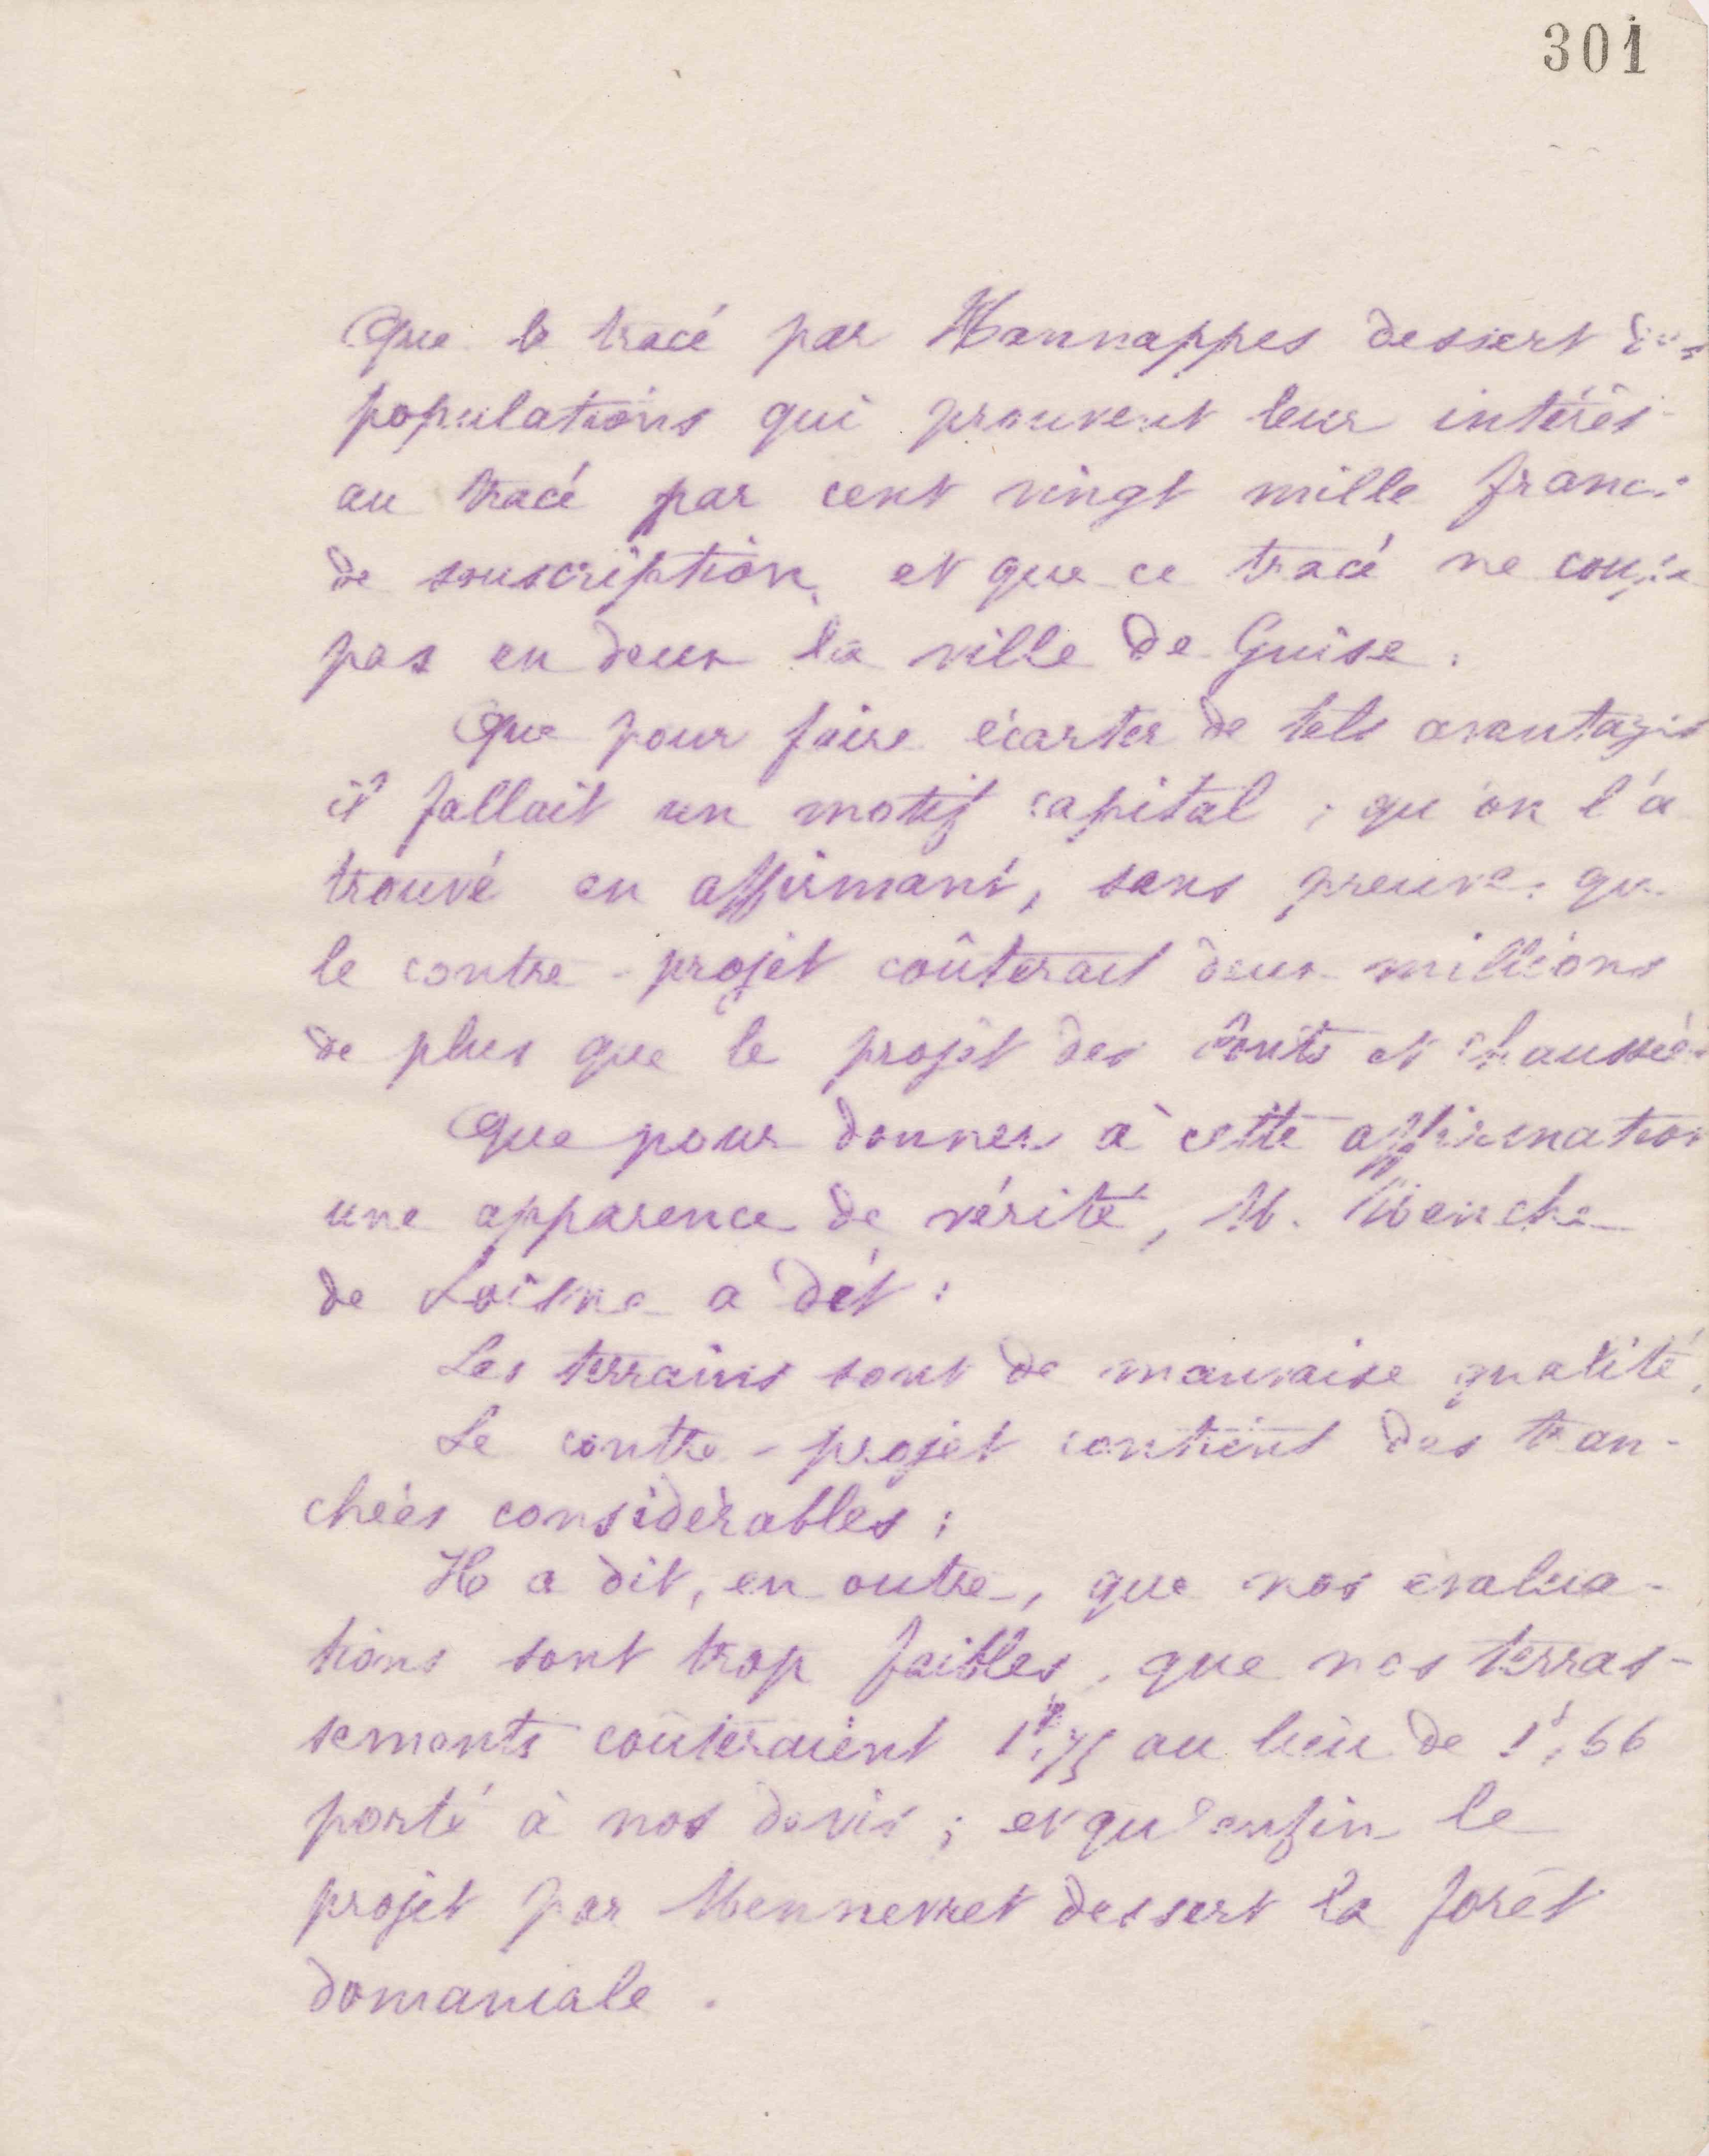 301
Que le tracé par Hannappes dessert des
populations qui prouvent leur intérêt
au tracé par cent vingt mille francs
de souscription, et que ce tracé ne coupe
pas en deux la ville de Guise.
Que pour faire écarter de tels avantages
il fallait un motif capital ; qu'on l'a
trouvé en affirmant, sans preuve, que
le contre-projet coûterait deux millions
de plus que le projet des Ponts et chaussées
Que pour donner à cette affirmation
une apparence de vérité, M. Menche
de Loisne a dit :
Les terrains sont de mauvaise qualité,
Le contre-projet contient des tran-
chées considérables ;
Il a dit, en outre, que nos évalua-
tions sont trop faibles, que nos terras-
sements coûteraient 1f,75 au lieu de 1f,66
porté à nos devis ; et qu'enfin le
projet par Mennevret dessert la forêt
domaniale.